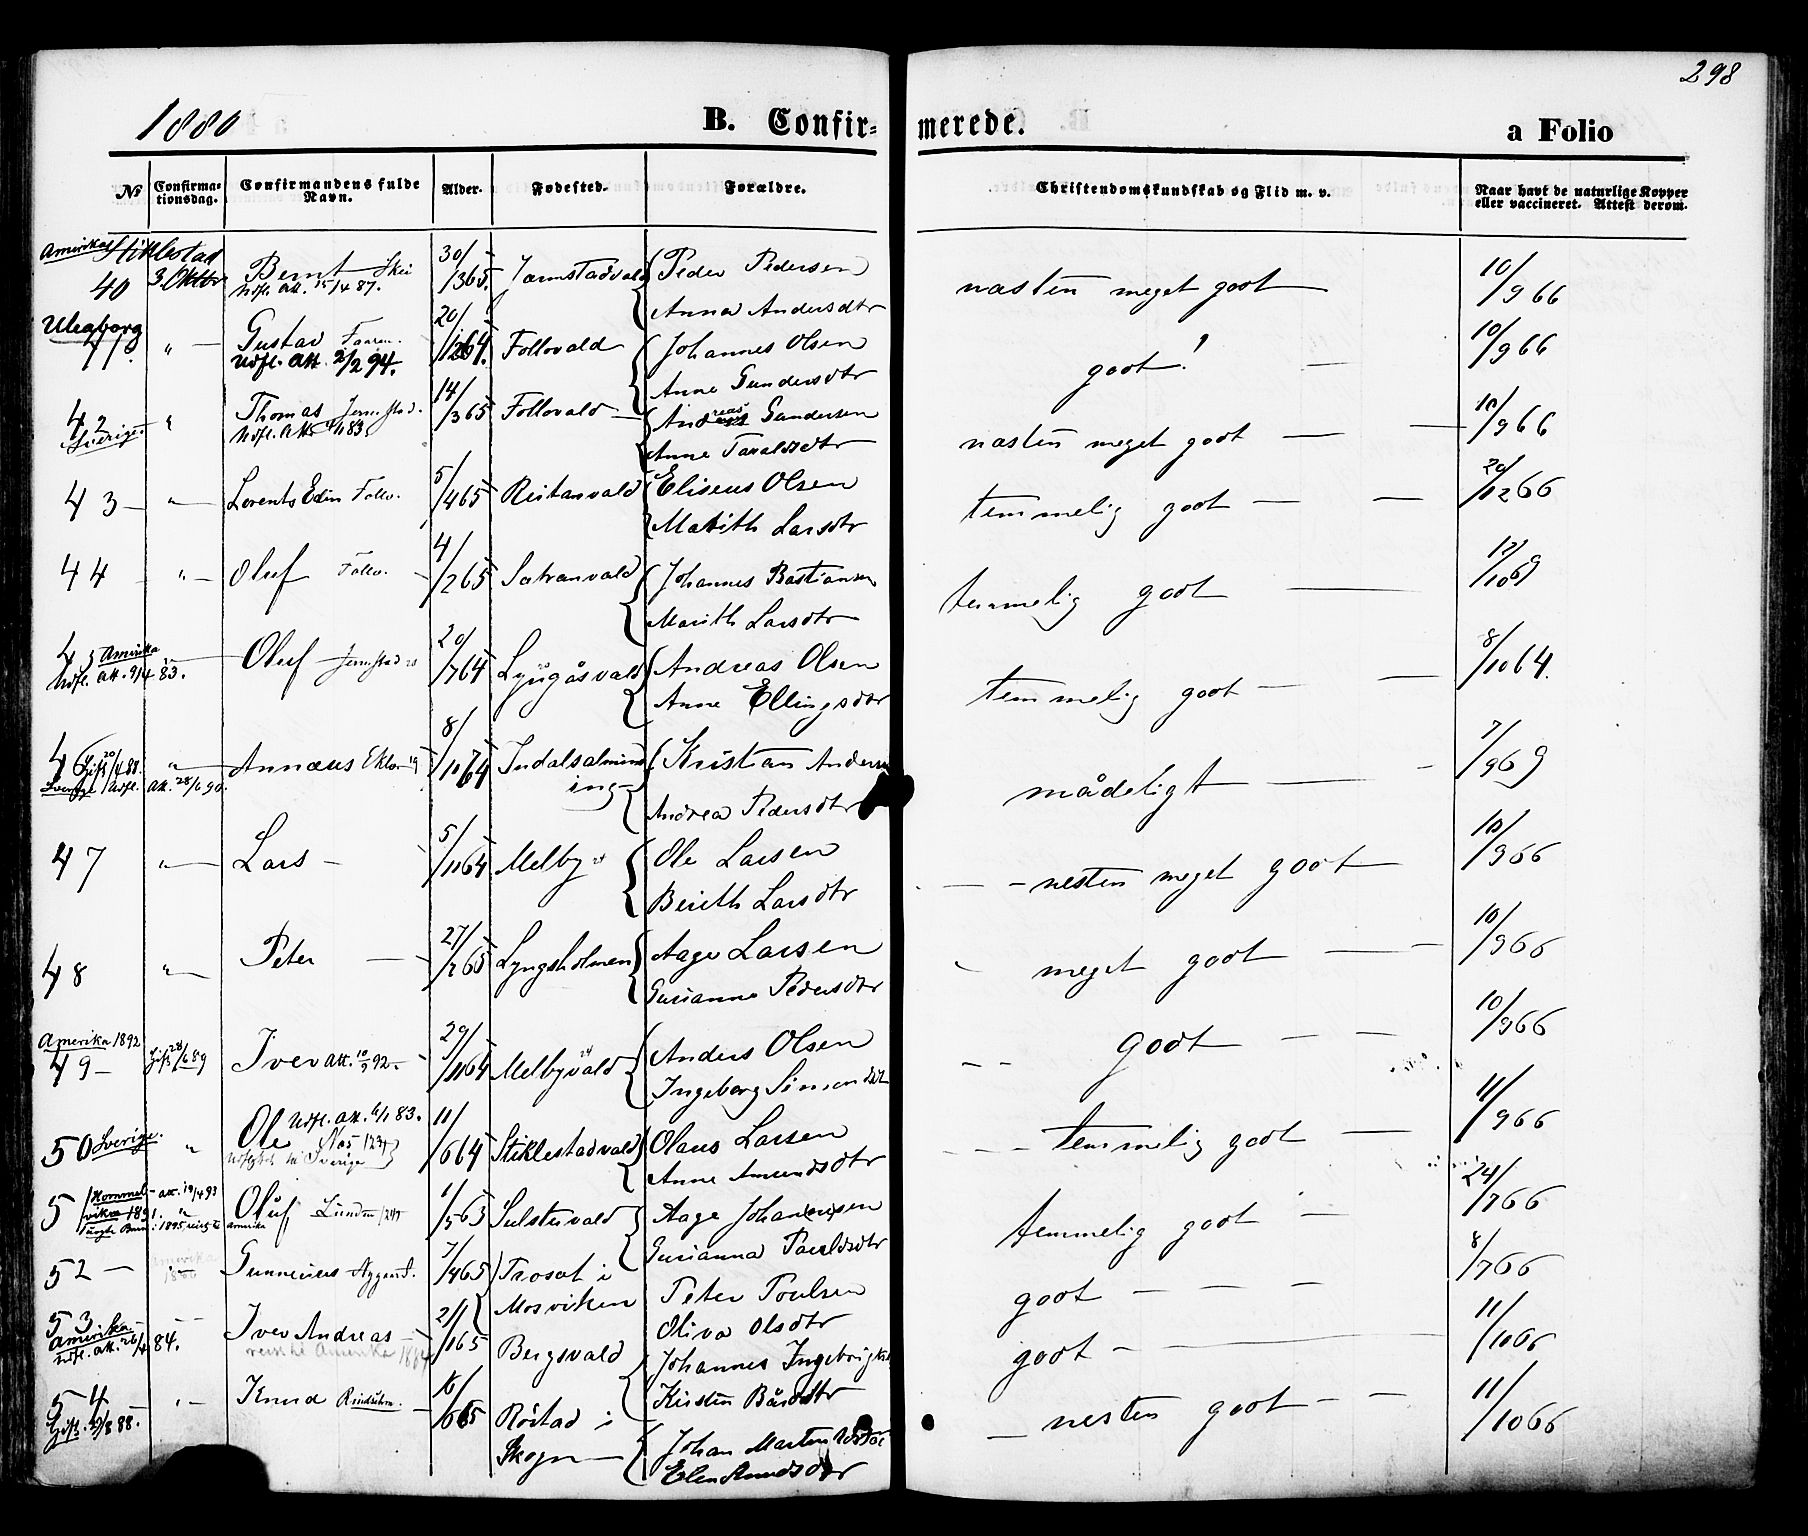 298
1880 B. Confir- merede. a Folio
№ Confirma- tionsdag. Confirmandens fulde Navn. Alder. Fødested. Forældre. Christendomskundskab og Flid m. v. Naar havt de naturlige Kopper eller vaccineret. Attest derom.
Amerika Stiklestad
40 3 Oktbr Bernt Skei 30/3 65. Jermstadvald Peder Pedersen næsten meget godt 10/9 66
Udfl. Att. 15/4 87. Anna Andersdtr
Uleaborg
41. " Gustav Faaren. 20/12 64. Follovald Johannes Olsen godt! 10/9 66
Udfl. Att. 2/2 94. Anne Gundersdtr
42 " Thomas Jermstad. 14/3 65 Follovald Andreas Gundersen næsten meget godt 10/9 66
Sverige Udfl. Att. 83 Anne Taraldsdtr
43 " Lorents Edin Follo. 5/4 65 Reitanvald Eliseus Olsen temmelig godt 20/12 66
Marith Larsdtr
44 " Oluf Follo. 4/2 65 Sætranvald Johannes Bastiansen temmelig godt 12/10 69
Marith Larsdtr
45 Amerika Oluf Jermstad 20/7 64 Lyngåsvald Andreas Olsen temmelig godt 8/10 64.
Udfl. Att. 9/4 83. Anne Ellingsdtr
46 Gift 20/4 88. " Annæus Eklo 8/10 64 Indalsalmind Kristian Andersen mådeligt 7/9 69
Sverige Udfl. Att. 28/6 90. ing Andrea Pedersdtr
47 " Lars 5/11 64 Melby Ole Larsen nesten meget godt 10/9 66
Berith Larsdtr
48 " Peter 27/7 65 Lyngsholmen Aage Larsen meget godt 10/9 66
Gurianna Pedersdtr
Amerika 1892
49 Gift 28/6 89 Iver Att. 10/9 92. 29/11 64 Melbyvald Anders Olsen godt 10/9 66
Ingeborg Simonsdtr
50 Sverige. " Ole Udfl. Att. 6/1 83. 11/6 64 Stiklestadvald Olaus Larsen temmelig godt 11/9 66
Udflyttet til Sverige Anne Amundsdtr
51 Hommel- Att. 19/4 93
vika 1891. " Oluf Lunden 1/5 63 Sulstuvald Aage Johannesen temmelig godt 24/7 66
Gurianna Pauldsdtr
52 Amerika Gunnerius Nygaard. 7/4 65 Trosat i Peter Poulsen godt 8/7 66
Mosviken Oliva Olsdtr
53 Iver Andreas 2/1 65 Bergsvald Johannes Ingebrigts godt 11/10 66
Amerika. Udfl. Att. 26/4 84. Kirstin Bårddtr
54 " Knud 16/6 65 Röstad i Johan Marten nesten godt 11/10 66
Gift 88. Skogn Elen Amundsdtr